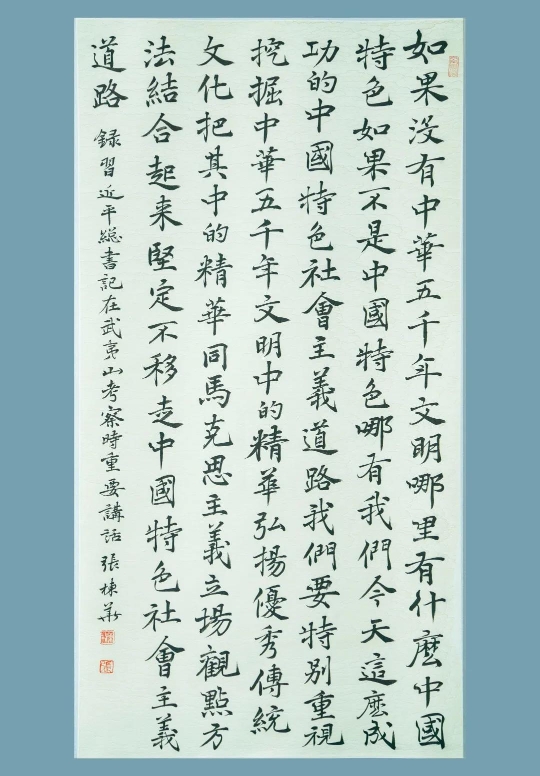 如果没有中華五千年文明哪里有什麽中國
特色如果不是中國特色哪有我們今天這麽成
功的中國特色社會主義道路我們要特别重視
挖掘中華五千年文明中的精華弘揚優秀傳統
文化把其中的精華同馬克思主義立場觀點方
法結合起来堅定不移走中國特色社會主義
道路
録習近平總書記在武夷山考察時重要講话 張棟華